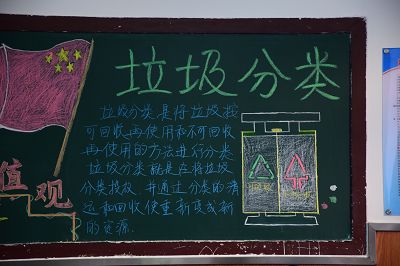 垃圾分类
垃圾分类是将垃圾按
可回收再使用和不可回收
再使用的方法进行分类
垃圾分类就是在将垃圾
分类投放,并通过分类的清
运和回收使重新变成新
的资源.
值观